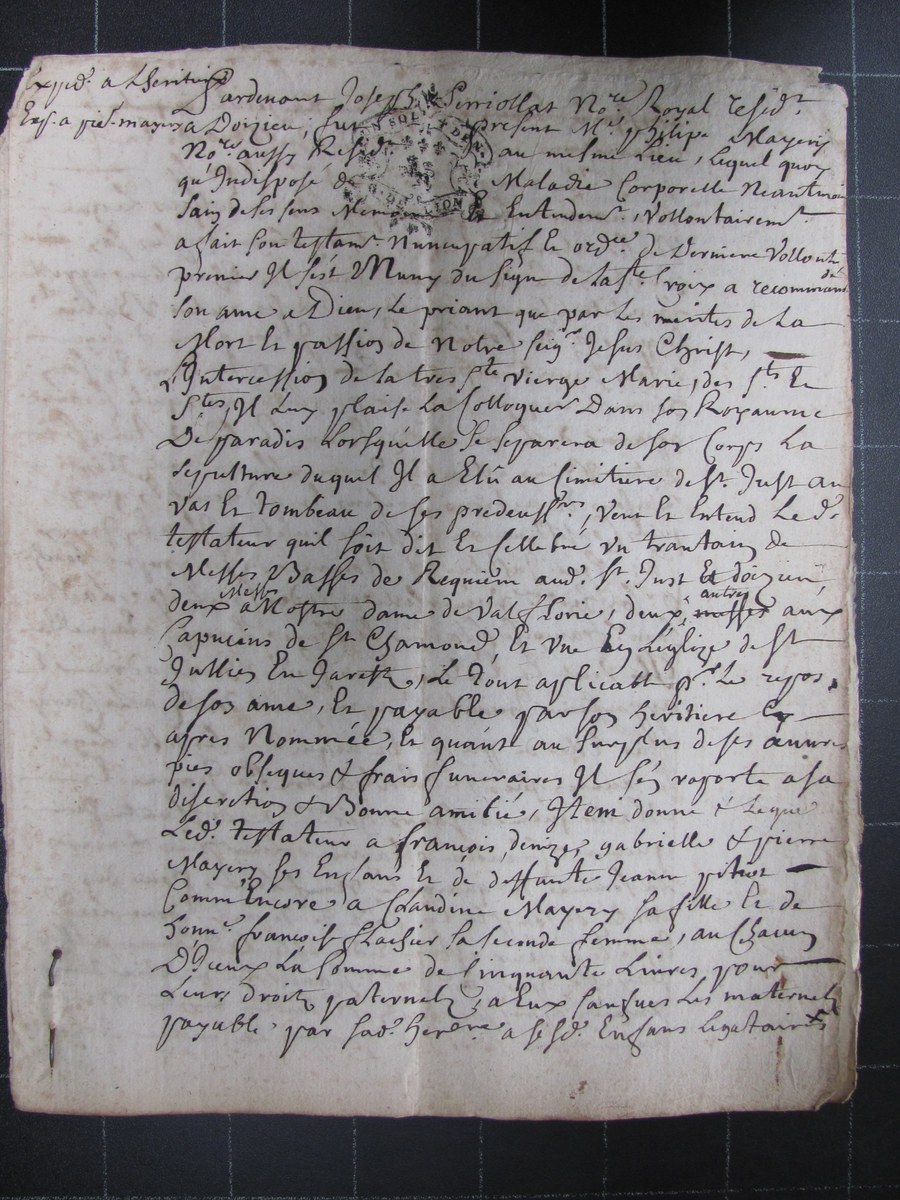 Expéd. a Lheritiere
Exp. a pier. mayery
Pardevant Joseph Perriollat No.re Royal resid.t
a Doizieu, fut present M.e philipe Mayery
No.re aussy Resid.t au mesme Lieu, lequel quoy
qu'Indisposé de Maladie Corporelle Neantmoin
sain de ses sens Memoire Et Entendem.t, Vollontairem.t
a fait son testam.t Nuncupatif Et ord.ce de Derniere Vollonté
premier Il s'est Muny du signe de la S.te Croix a recommandé
son ame a Dieu, Le priant que par Les merites de La
Mort Et passion de Notre Seig.r Jesus Christ,
L'Intercession de la tres S.te vierge Marie, des S.ts Et
S.tes, Il Luy plaise La Colloquer Dans son Royaume
De paradis Lorsqu'elle se separera de son Corps La
sepulture duquel Il a Elû au Cimitiere de S.t Just au
vas Et tombeau de ses predeuss.rs, veut Et Entend Le d.
testateur quil soit dit Et Cellebré un trantain de
Messes Basses de Requiem aud. S.t Just Et doizieu
deux Messes a Nostre dame de Val florie, deux autres messes aux
Capucins de S.t Chamond, Et une En L'eglize de S.t
Jullien En Jarest, Le tout aplicable p.r Le repos
de son ame, Et payable par son heritiere Cy
apres Nommée, Et quant au surplus de ses œuvres
pies obseques & frais funeraires Il s'en raporte a sa
discretion & Bonne amitié, Item donne & Legue
Led. testateur a françois, denize, gabrielle & pierre
Mayery ses Enfans Et de deffunte Jeanne pitiot
Comm'Encore a Claudine Mayery sa fille Et de
honn.e françoise flachier sa seconde femme, au Chacun
D'Iceux La somme de Cinquante Livres pour
Leurs droits paternels, a Eux saufs Les maternels
payable par sad. herere a sesd. Enfans Legataires